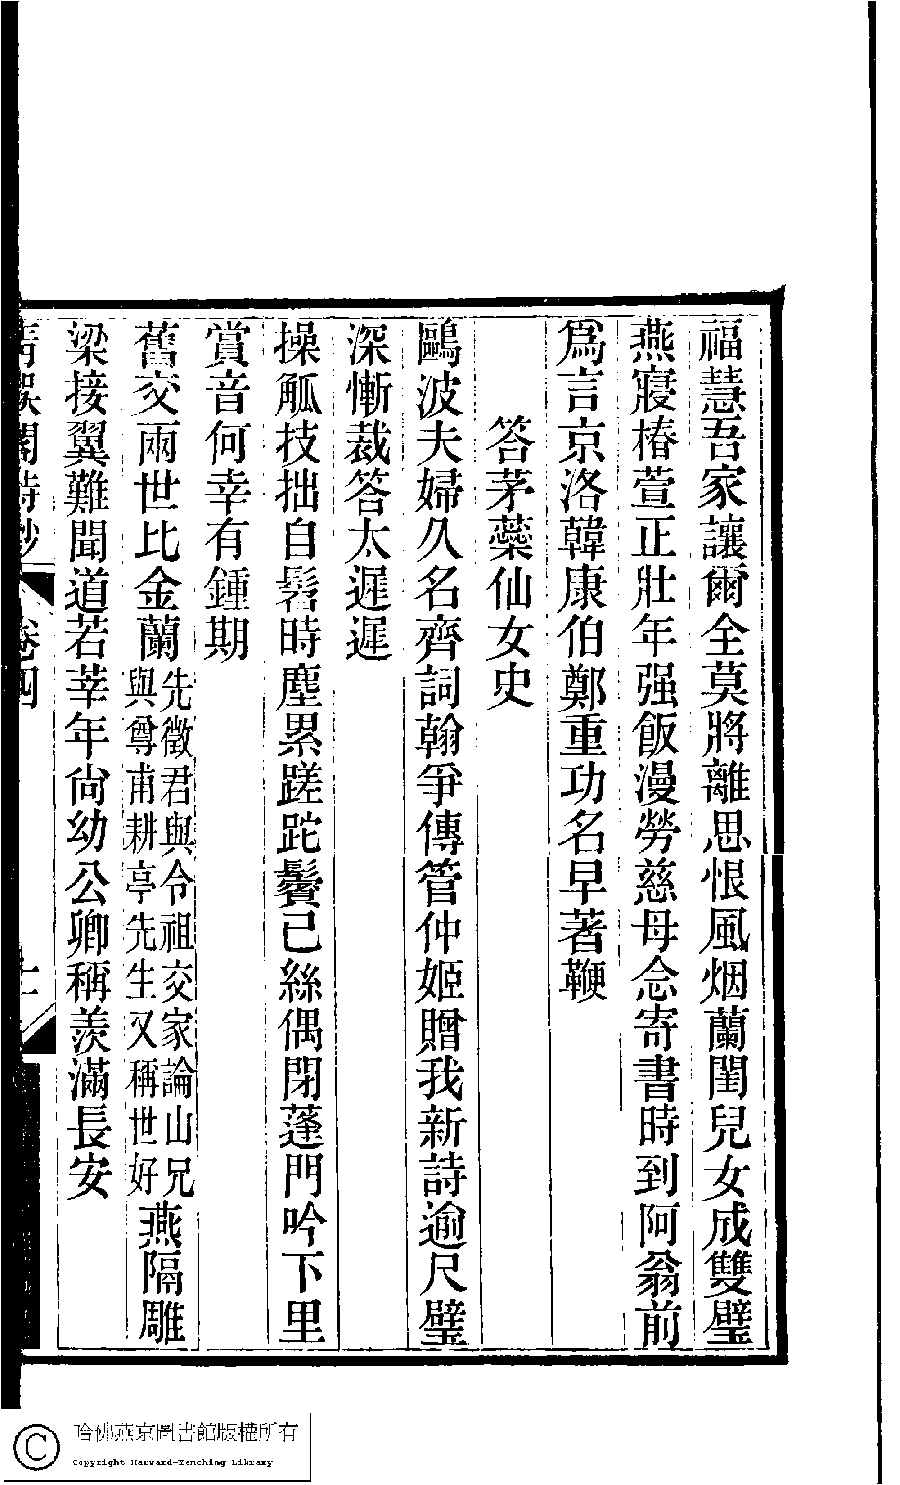 福慧吾家讓爾全莫將離思恨風烟蘭閨兒女成雙璧
燕寢椿萱正壯年强飯漫勞慈母念寄書時到阿翁前
爲言京洛韓康伯鄭重功名早著鞭
答茅蘂仙女史
鷗波夫婦久名齊詞翰爭傳管仲姬贈我新詩逾尺璧
深慚裁答太遲遲
操觚技拙自髫時塵累蹉跎鬢已絲偶閉蓬門吟下里
賞音何幸有鍾期
舊交兩世比金蘭先徵君與令祖交家論山兄與尊甫耕亭先生又稱世好燕隔雕
梁接翼難聞道若莘年尙幼公卿稱羨滿長安
閣詩鈔
卷四
哈佛燕京圖書館版權所有
Copyright Harvard-Yenching Library